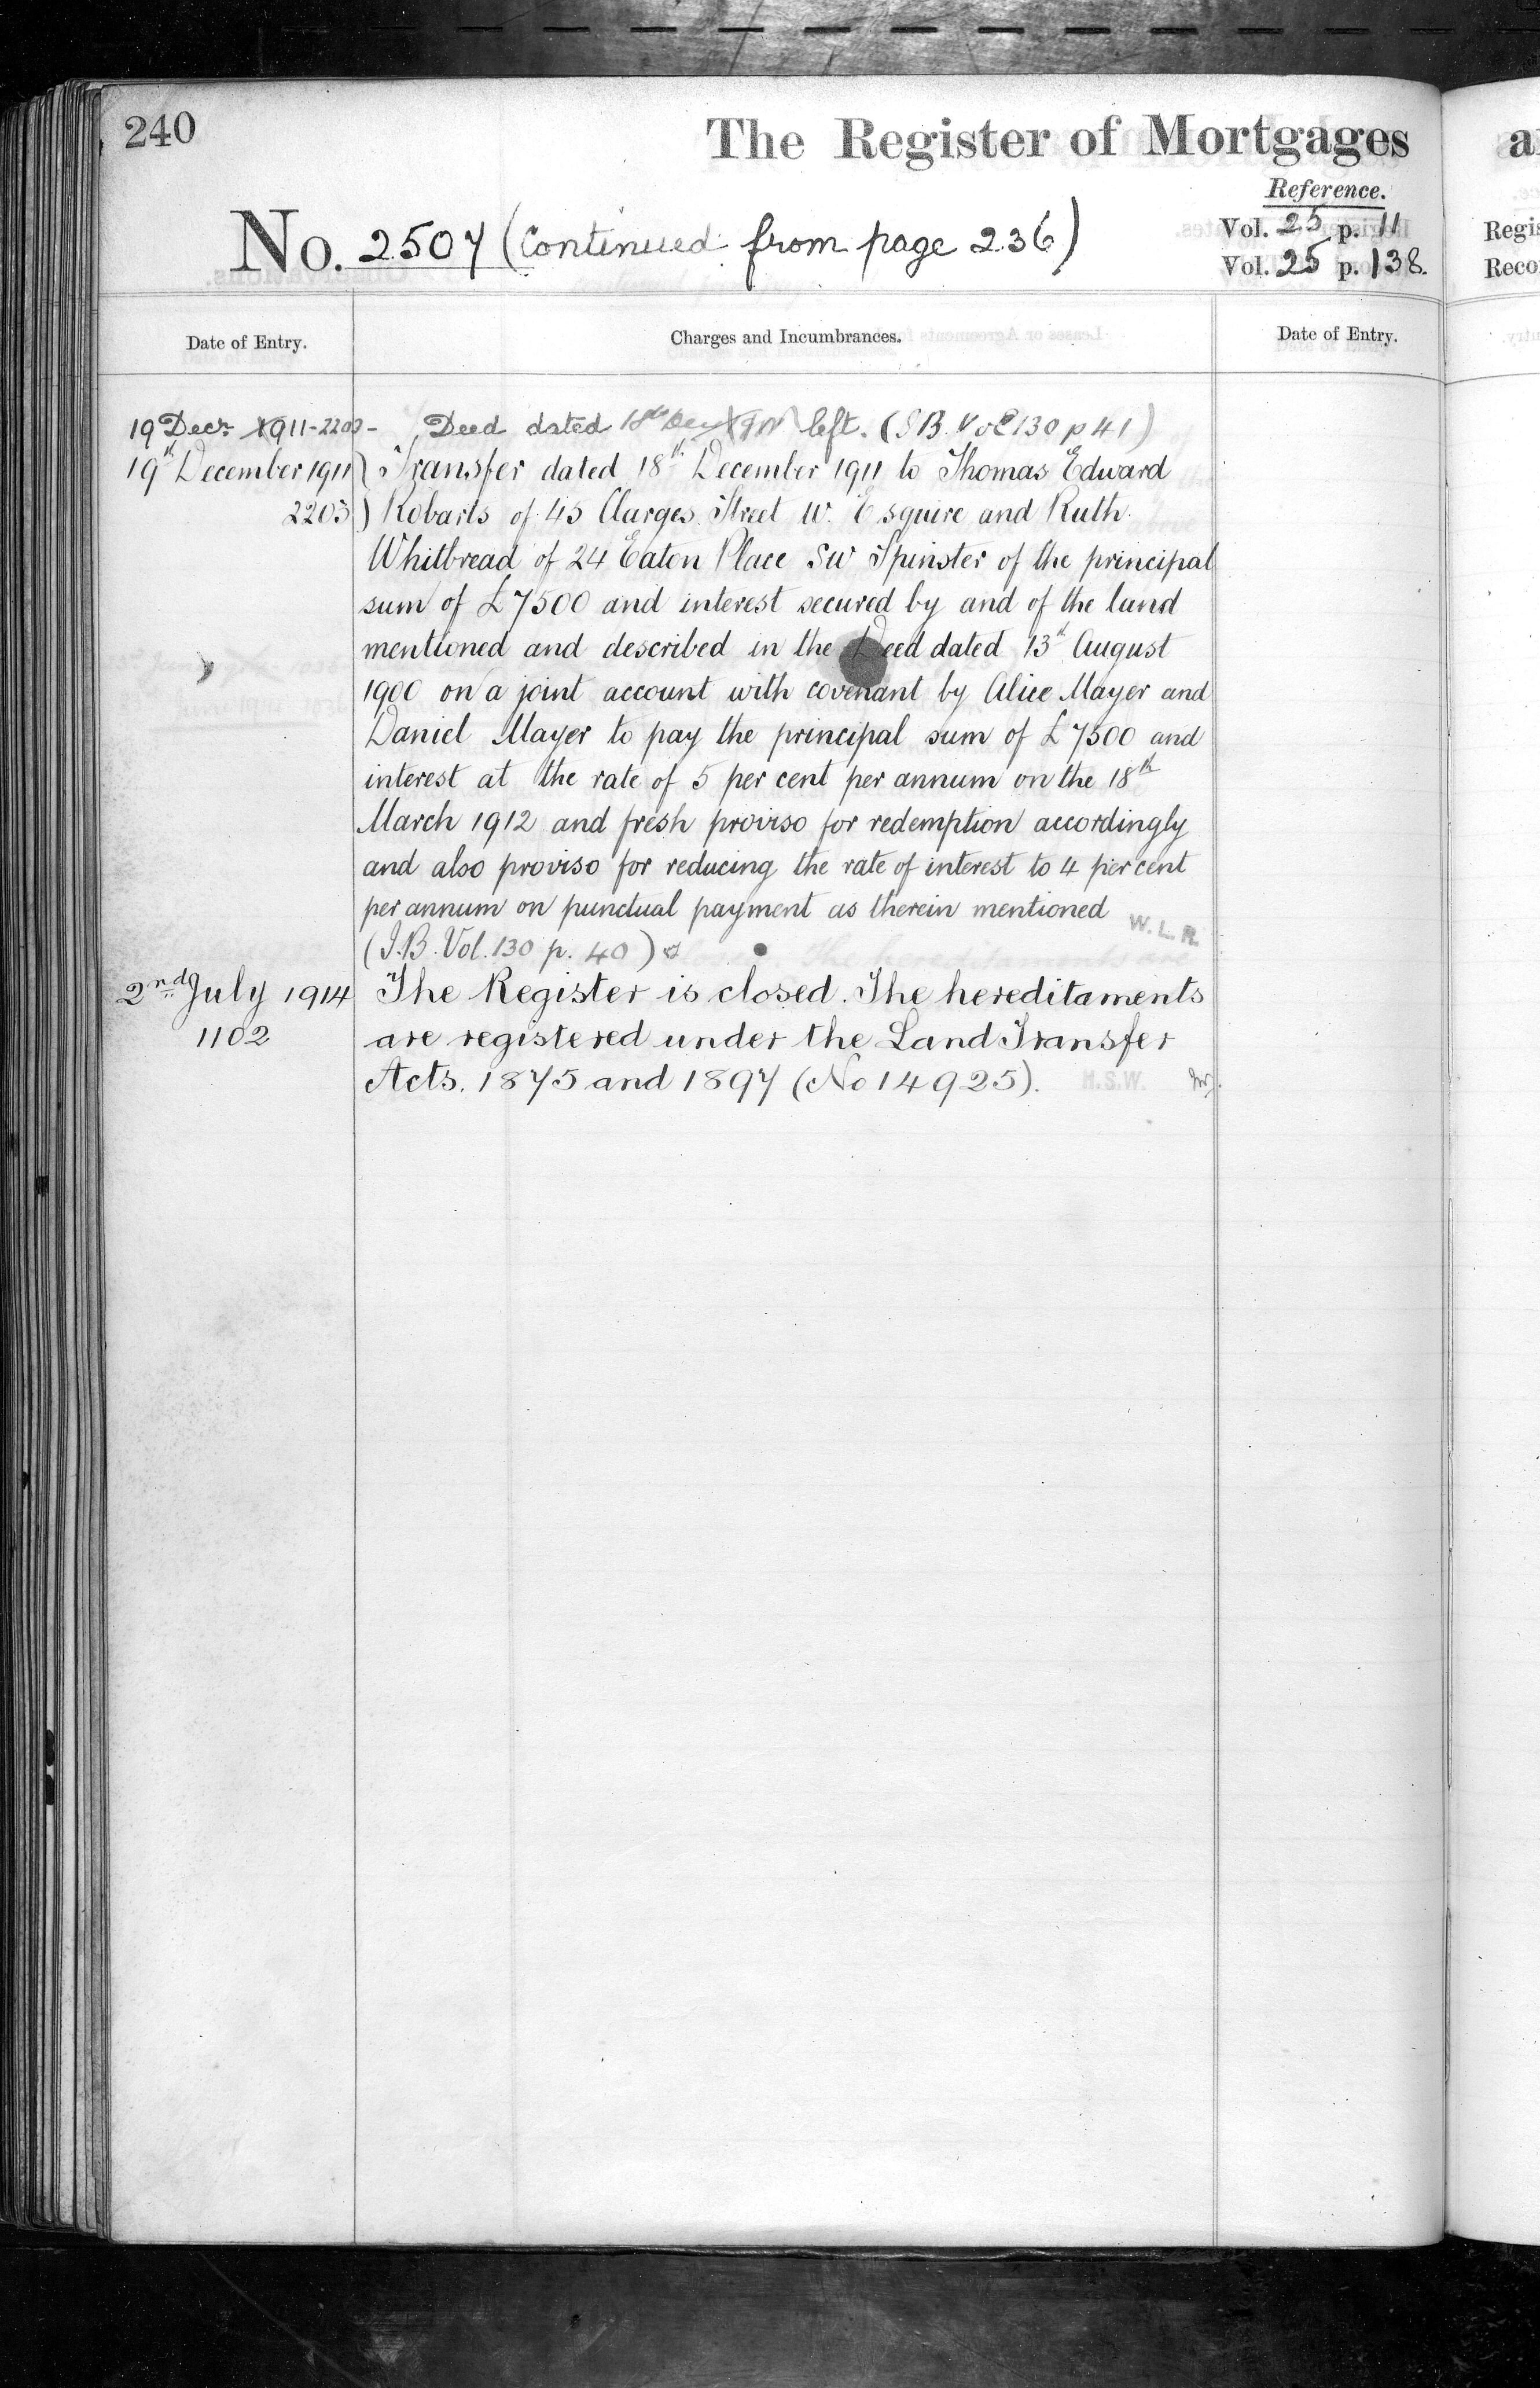 240
The Register of Mortgages
Reference.
No. 2507 (Continued from page 236)
Vol. 25 p. 11
Vol. 25 p. 138.
Date of Entry.
Charges and Incumbrances.
Date of Entry.
19 Decr. 1911-2203- Deed dated 18th Decr 1911 left. (I.B. Vol 130 p 41)
19th December 1911 ) Transfer dated 18th December 1911 to Thomas Edward
2203 ) Robarts of 45 Clarges Street W. Esquire and Ruth
Whitbread of 24 Eaton Place SW Spinster of the principal
sum of £7500 and interest secured by and of the land
mentioned and described in the Deed dated 13th August
1900 on a joint account with covenant by Alice Mayer and
Daniel Mayer to pay the principal sum of £7500 and
interest at the rate of 5 per cent per annum on the 18th
March 1912 and fresh proviso for redemption accordingly
and also proviso for reducing the rate of interest to 4 per cent
per annum on punctual payment as therein mentioned W.L.R.
(I.B. Vol. 130 p. 40)
2nd July 1914 The Register is closed. The hereditaments
1102 are registered under the Land Transfer
Acts. 1875 and 1897 (No 14925). H.S.W.
a
Regis
Reco